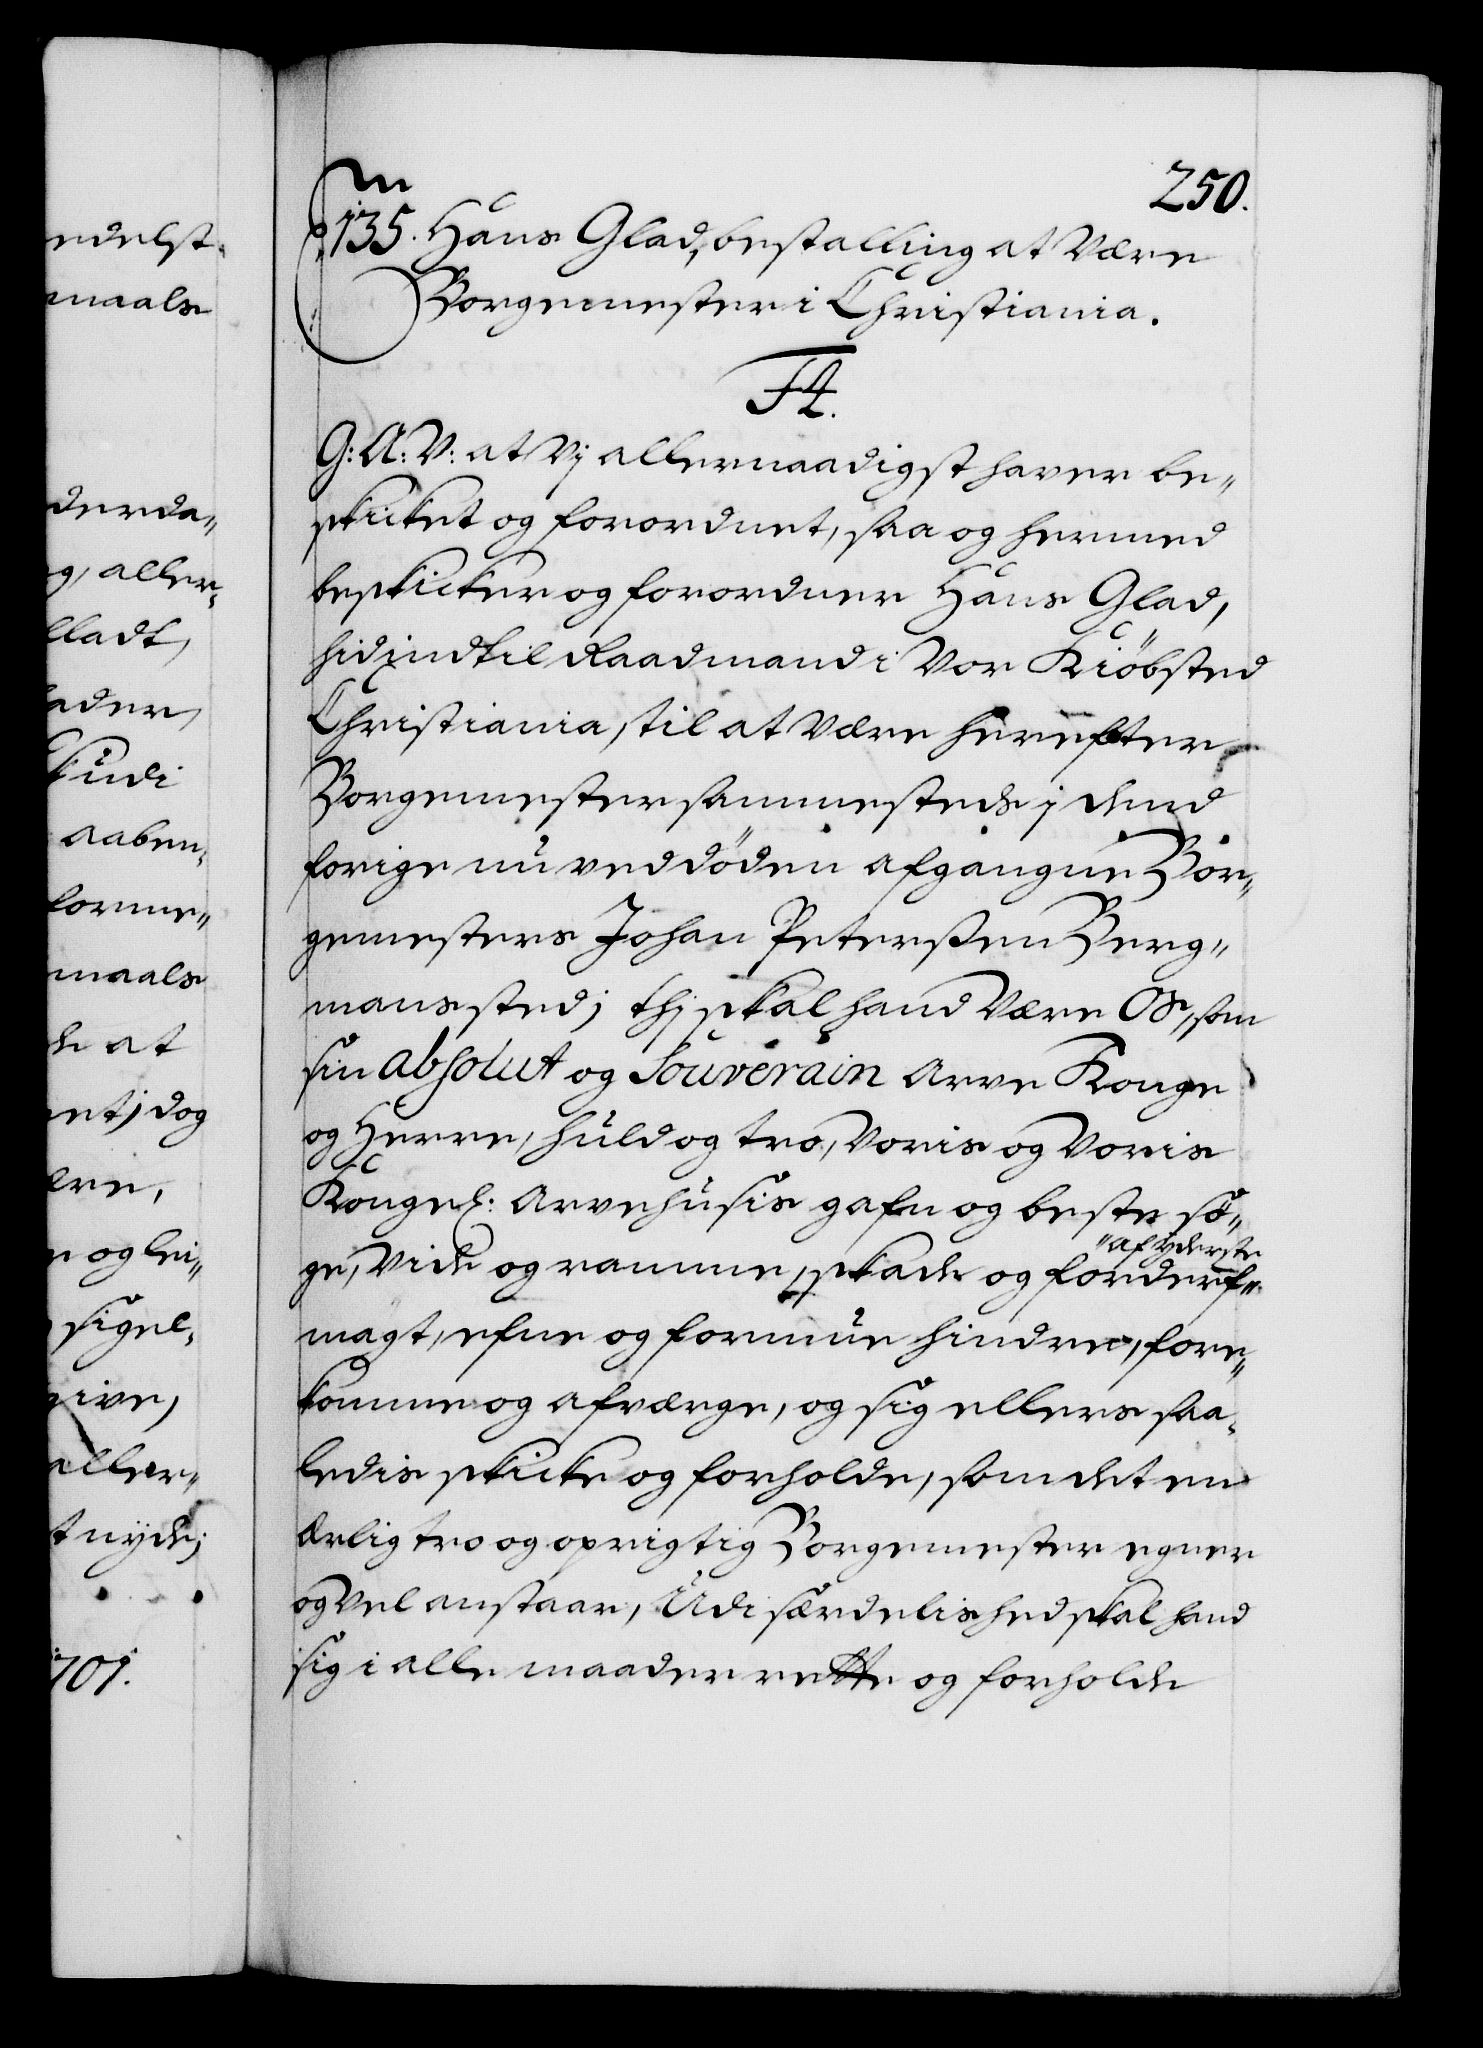 edelst.
maals
derda„
g, aller„
lladt,
ader,
kudi
aaben„
forme„
maals
de at
et; dog
ere,
og lei„
sigel„
give,
aller„
t nyde;
701.
250.
135. Hans Glad, bestalling at være
Borgemester i Christiania.
F4.
G: A: V: at Vj allernaadigst haver be„
skicket og forordnet, saa og hermed
beskicker og forordner Hans Glad,
hid indtil Raadmand i Vor Kiöbsted
Christiania, til at være herefter
Borgemester sammesteds j dend
forige nu ved döden afgangne Bor„
gemesters Johan Peterssen Berg„
mans sted; thj skal hand være Os, som
sin absolut og Souverain Arve Konge
og Herre, huld og tro, Voris og Voris
Kongel: Arvehusis gafn og beste sö„
ge, vide og ramme, skade og forderf„
"af yderste
magt, efne og formue hindre, fore„
komme og afværge, og sig ellers saa„
ledis skicke og forholde, som det en
ærlig tro og oprigtig Borgemester egner
og vel anstaar, Udi særdelished skal hand
sig i alle maader rette og forholde